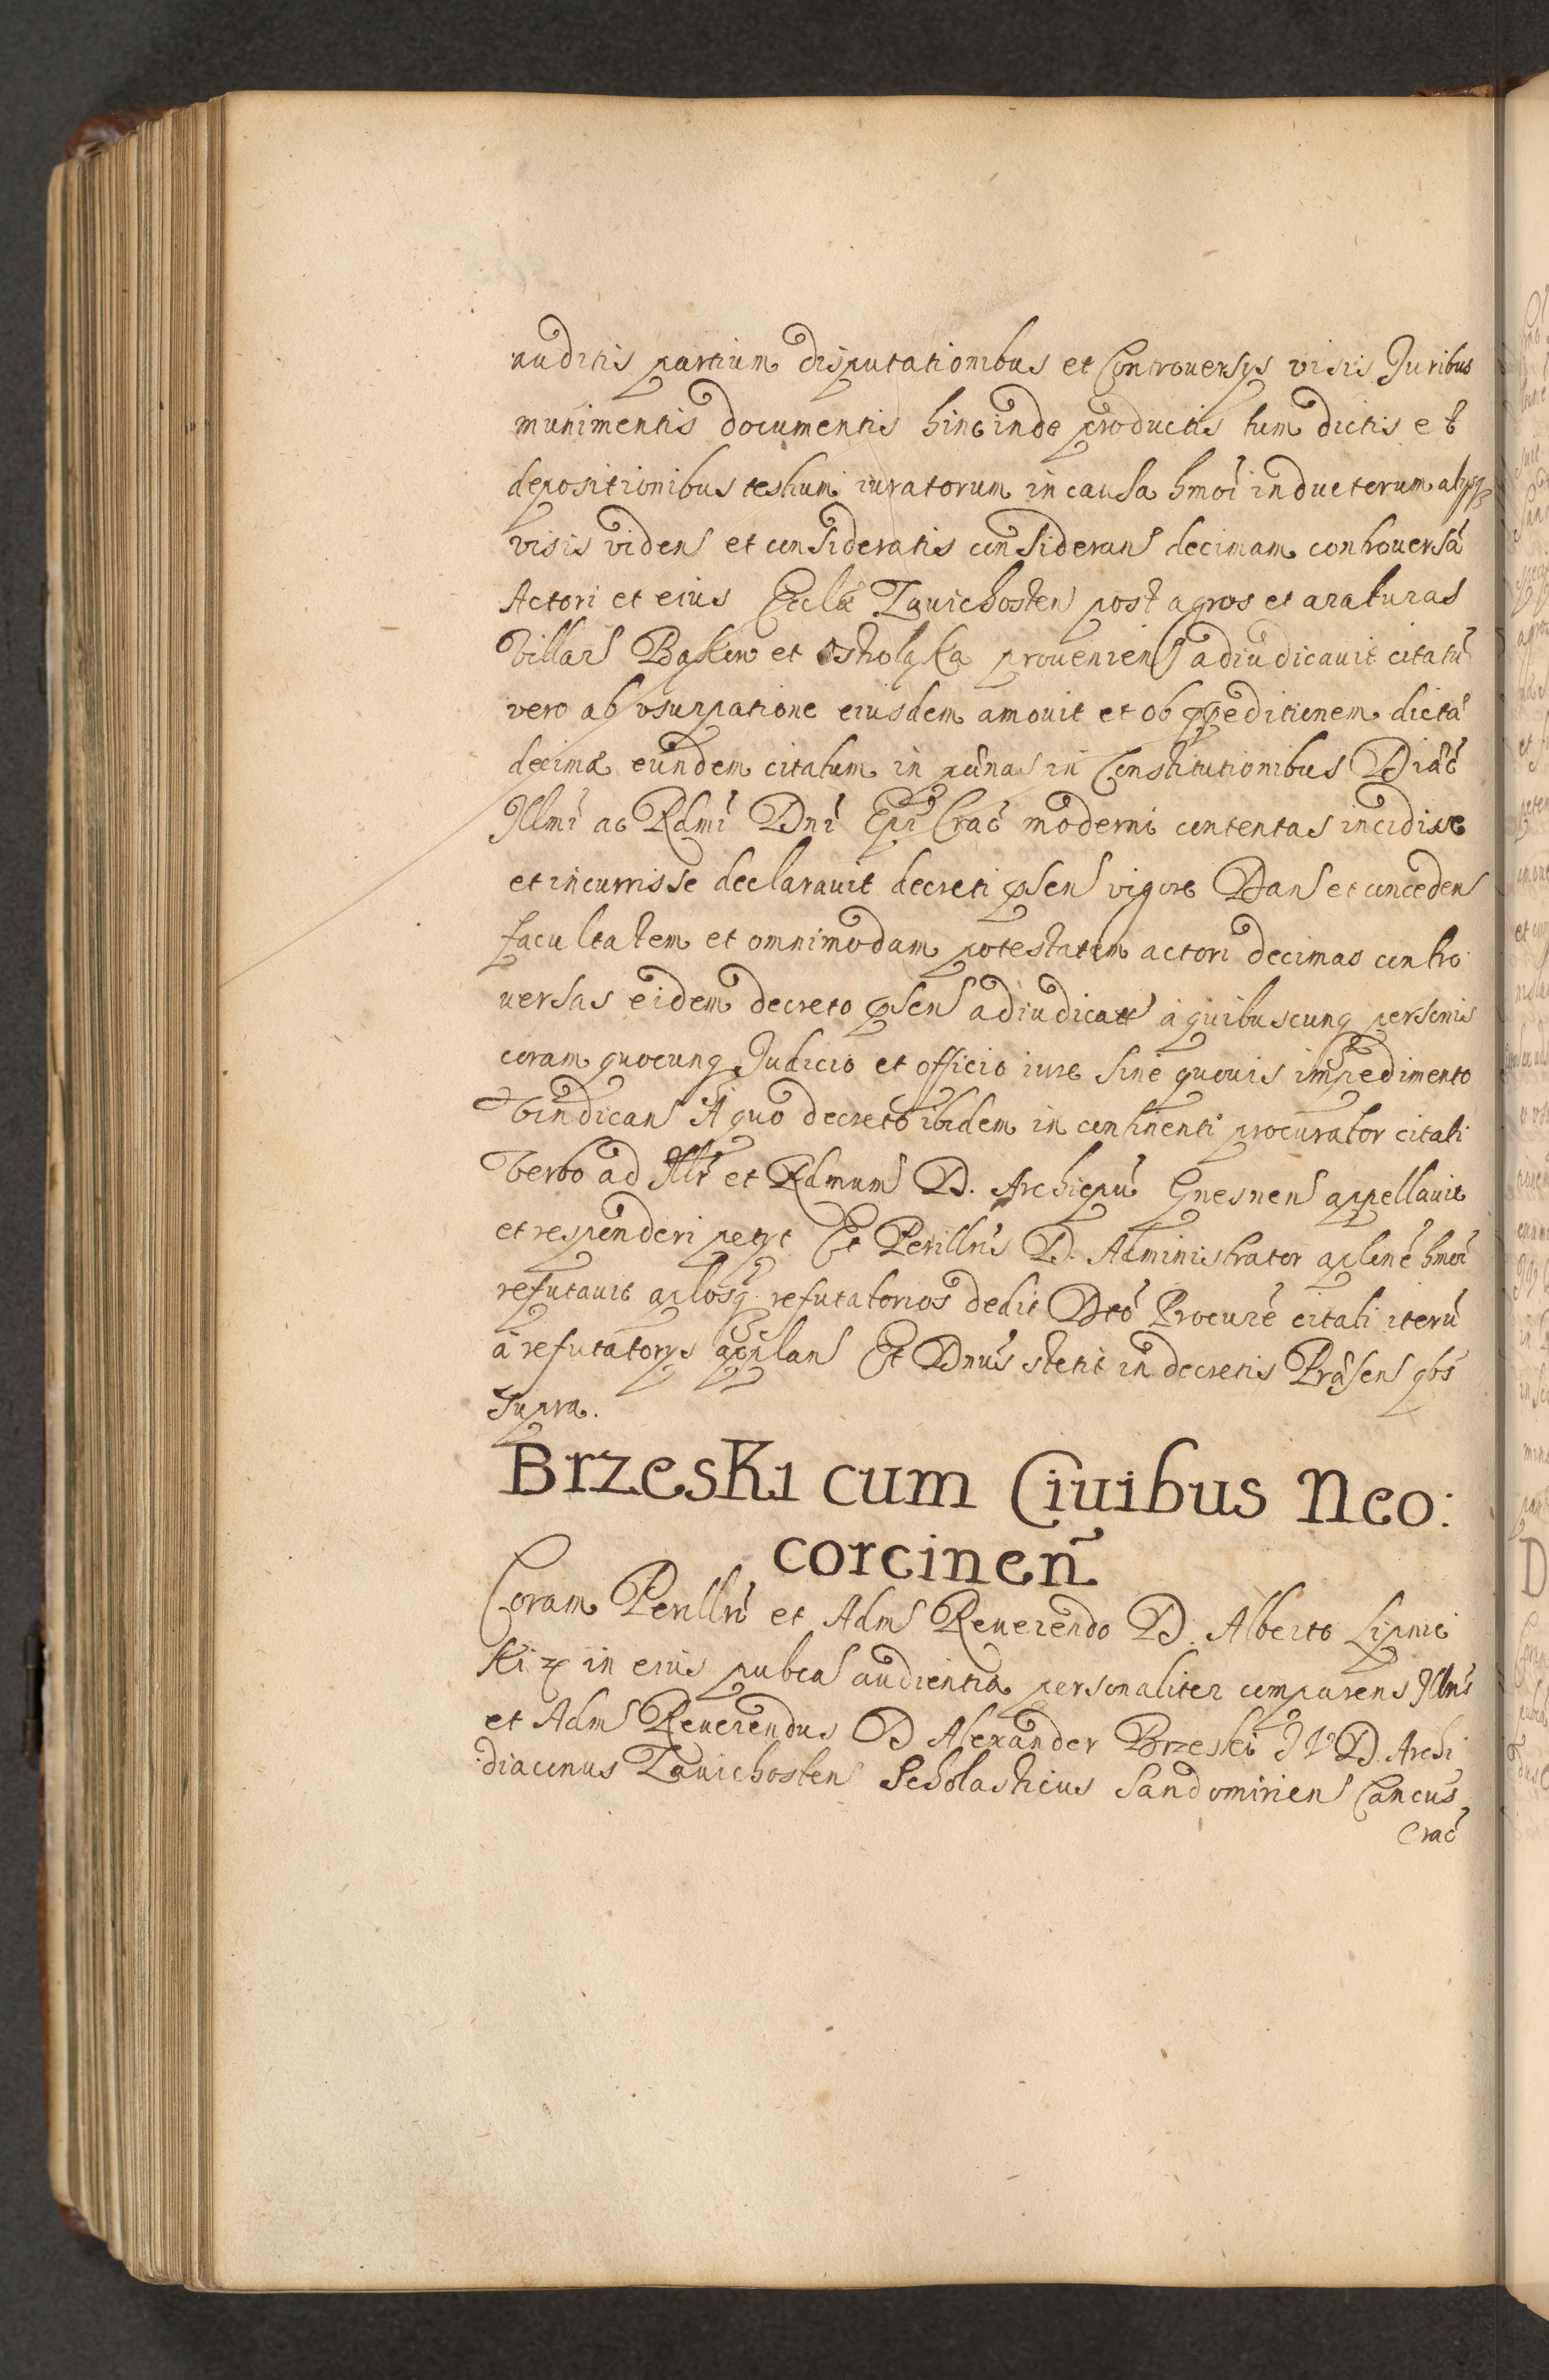 auditis partium disputationibus et Controuersys visis Juribus
munimentis documentis hincinde productis tum dictis et
depositionibus testium iuratorum in causa hmoi inductorum alysq
visis videns et consideratis considerans decimam controuersã
Actori et eius Ecclæ Zauichosten post agros et araturas
villars Baskow et Stholaska prouenien adiudicauit citatũ
vero ab vsurpatione eiusdem amouit et ob expeditionem dictã
decimæ eundem citatum in pœnas in Constitutionibus Diæc
Illmi ac Rdmi Dni Epi Crac moderni contentas incidisse
et incurrisse declarauit decreti psens vigore Dans et concedens
facultatem et omnimodam potestatem actori decimas contro
uersas eidem decreto psen adiudicatt a quibuscunq personis
coram quocunq Judicio et officio iure sine quouis impedimento
vindican A quo decreto ibidem in continenti procurator citati
verbo ad Illr et Rdmum D. Archiepũ Gnesnen appellauit
et responderi petyt Et Perillris D. Administrator aplnē hmoi
refutauit aplosq refutatorios dedit Dcto Procurē citati iterũ
a refutatorys applan Et Dnus stetit in decretis Præsen qbs
supra.
Brzeski cum Ciuibus Neo:
corcinen̄
Coram Perillri et Adm Reuerendo D. Alberto Lipnic
ki & in eius pubca audientia personaliter comparens Illris
et Adm Reuerendus D Alexander Brzeski J V D. Archi
diaconus Zauichosten Scholasticus Sandomirien Cancus
Crac